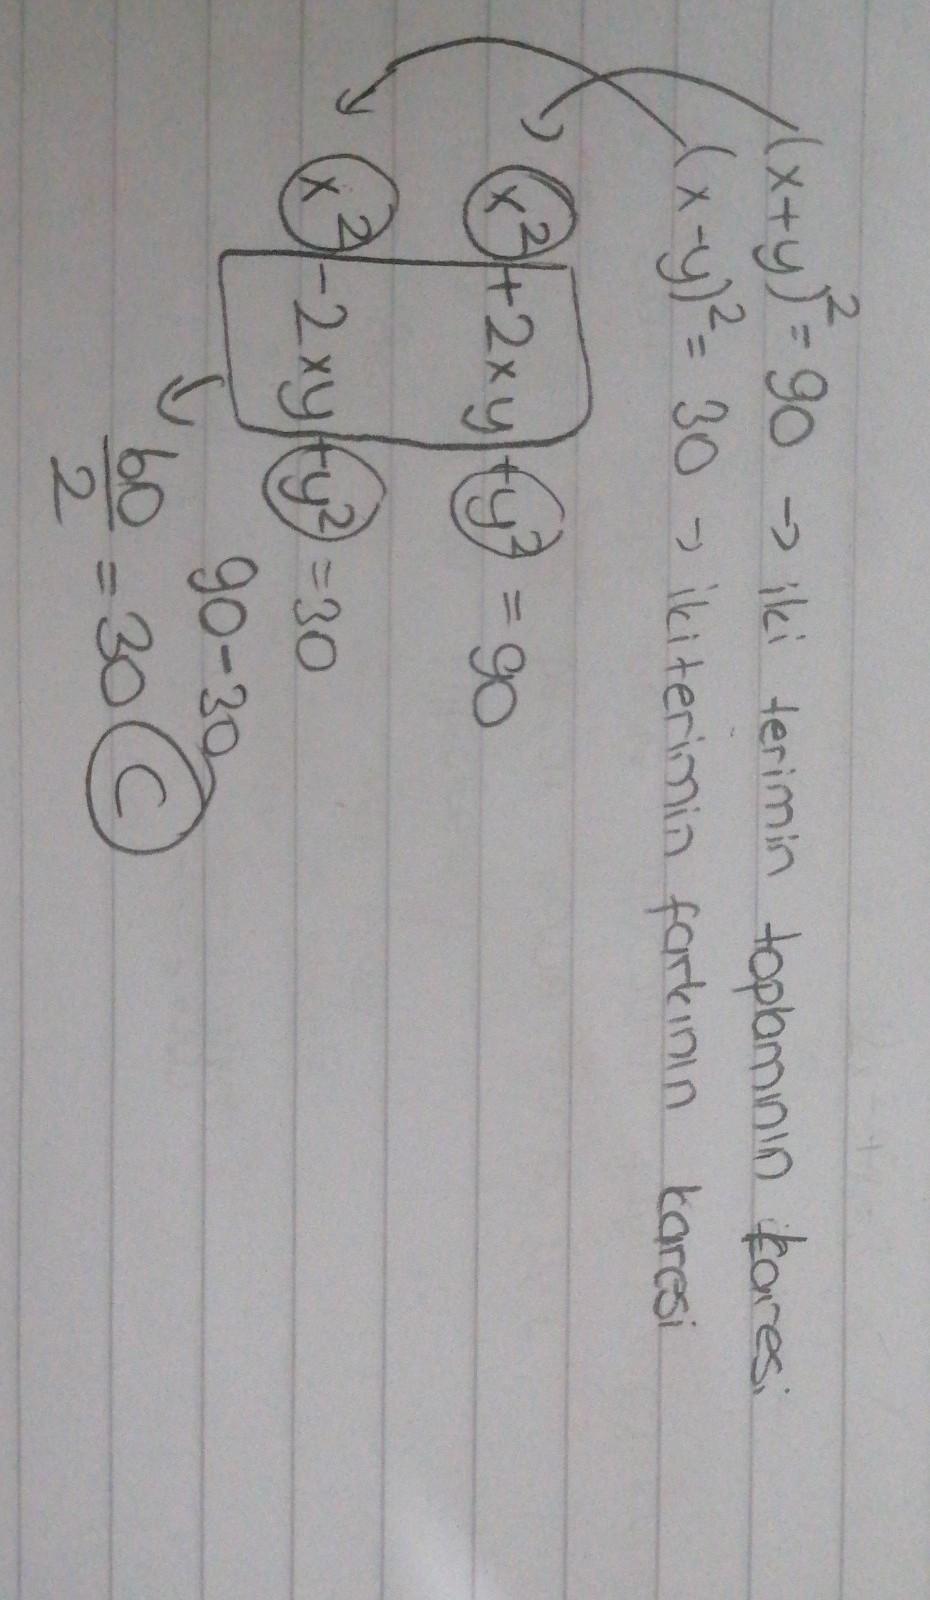 (x+y)² = 90 → iki terimin toplamının karesi
(x-y)² = 30 → iki terimin farkının karesi
x² + 2xy + y² = 90
x² - 2xy + y² = 30
90 - 30
60/2 = 30 C